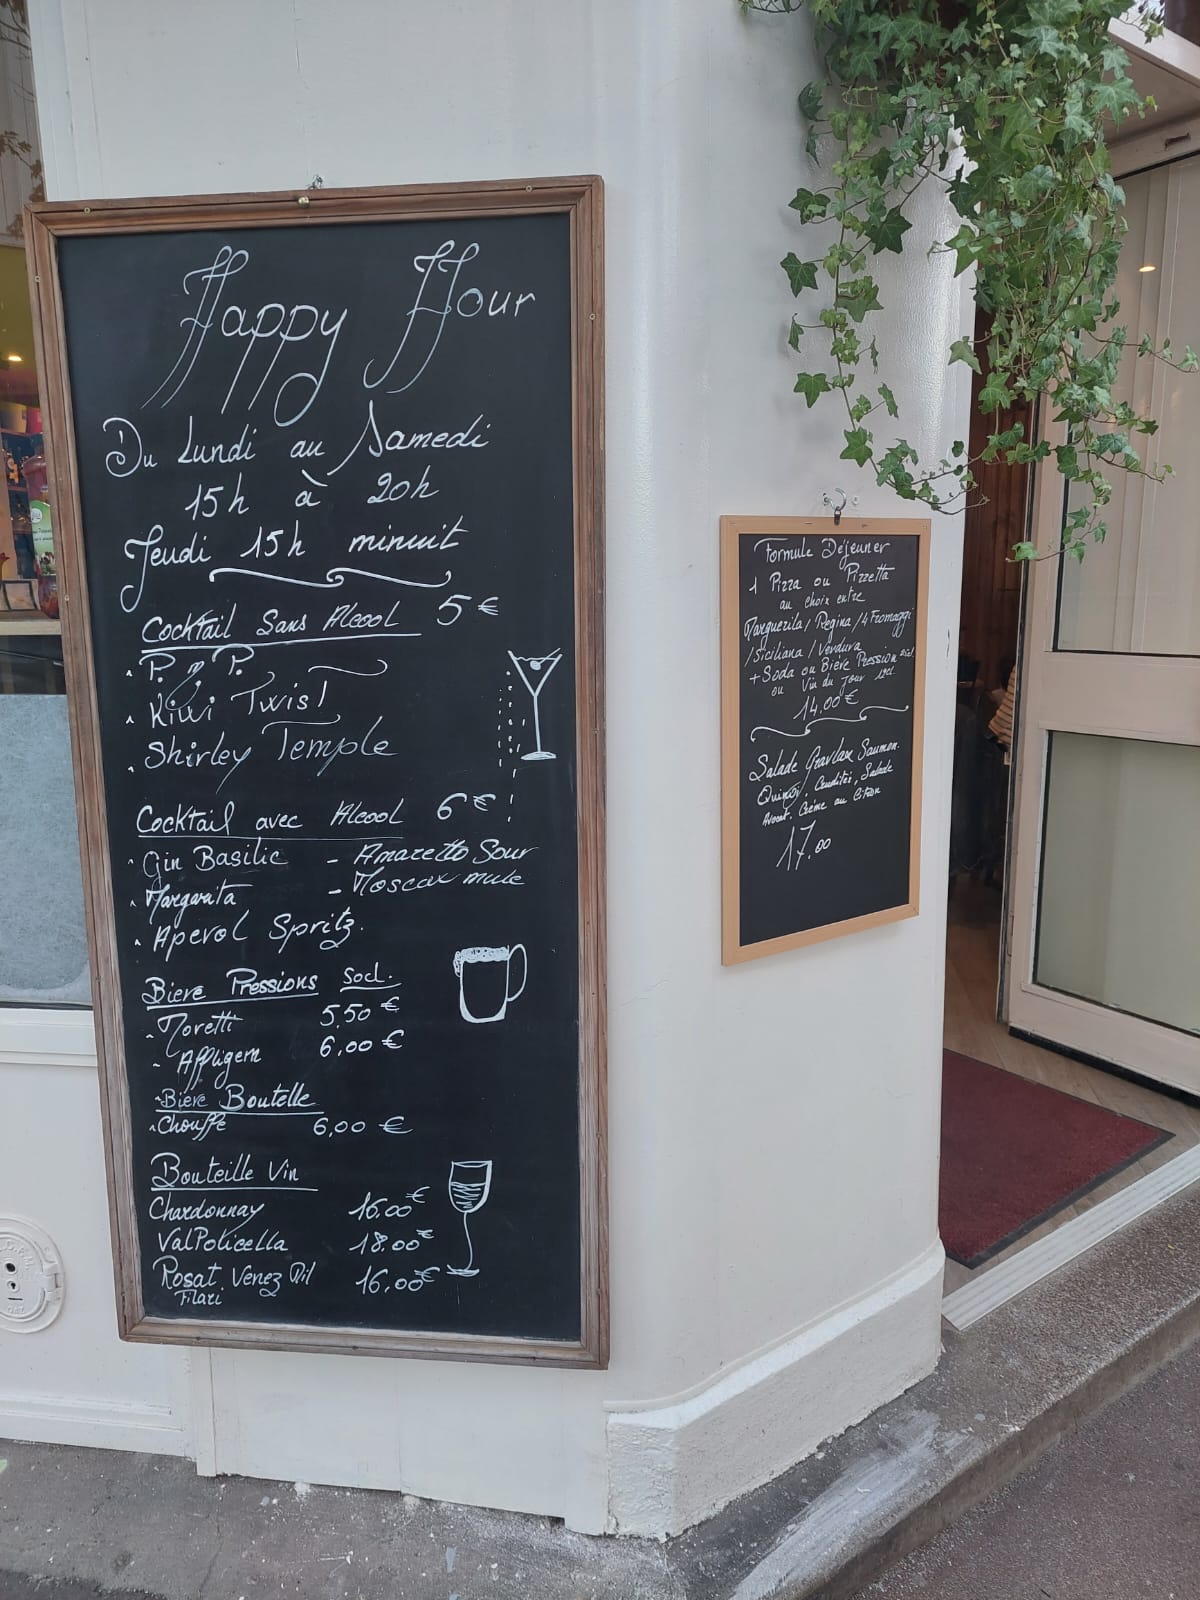 Happy Hour
Du Lundi au Samedi
15h à 20h
Jeudi 15h minuit
Cocktail Sans Alcool 5€
- P. y P.
- Kiwi Twist
- Shirley Temple
Cocktail avec Alcool 6€
- Gin Basilic - Amaretto Sour
- Margarita - Moscow mule
- Aperol Spritz.
Biere Pressions 50cl.
- Moretti 5,50 €
- Affligem 6,00 €
- Bière Boutelle
- Chouffe 6,00 €
Bouteille Vin
Chardonnay 16.00€
ValPolicella 18.00€
Rosat. Venez 16,00€
Filari
Formule Déjeuner
1 Pizza ou Pizzetta
au choix entre
Marguerita / Regina / 4 Fromaggi
/ Siciliana / Verdura
+ Soda ou Bière Pression 25cl.
ou Vin du Jour
14.00€
Salade Gravlax Saumon.
Quinoa, Crudités, Salade
Avocat, Crème au Citron
17.00